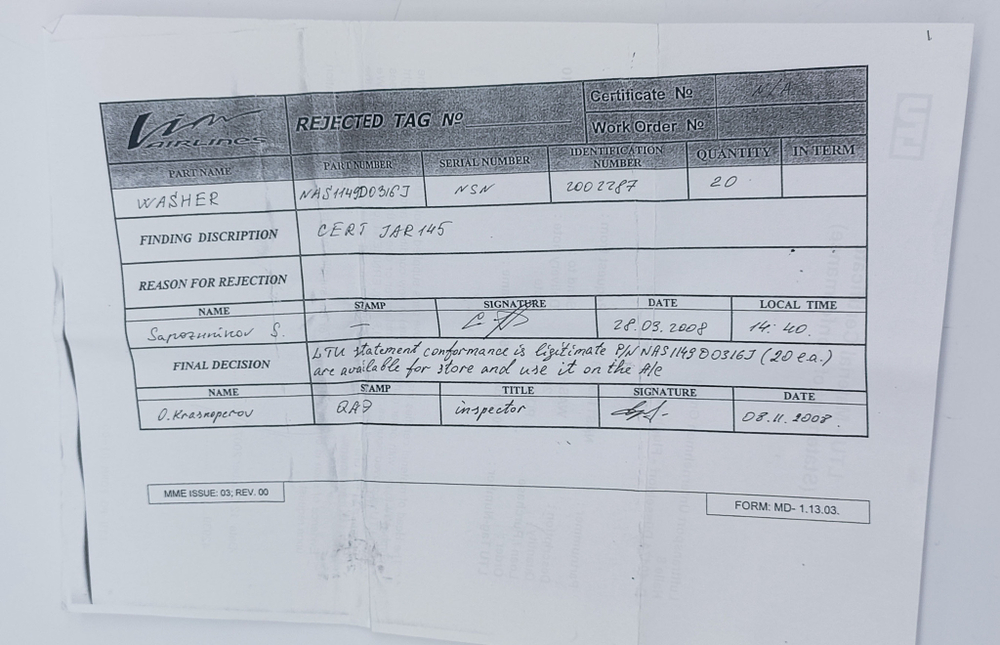 Vim AIRLINES
REJECTED TAG Nº
Certificate Nº N/A
Work Order Nº
PART NAME PART NUMBER SERIAL NUMBER IDENTIFICATION NUMBER QUANTITY IN TERM
WASHER NAS1149D0316J NSN 2002287 20
FINDING DISCRIPTION CERT JAR 145
REASON FOR REJECTION
NAME STAMP SIGNATURE DATE LOCAL TIME
Sapozhnikov S. — 28.03.2008 14:40.
FINAL DECISION LTU statement conformance is ligitimate P/N NAS1149D0316J (20 e.a.)
are available for store and use it on the A/c
NAME STAMP TITLE SIGNATURE DATE
O.Krasnoperov QA9 inspector 08.11.2008.
MME ISSUE: 03; REV. 00
FORM: MD- 1.13.03.
LTU